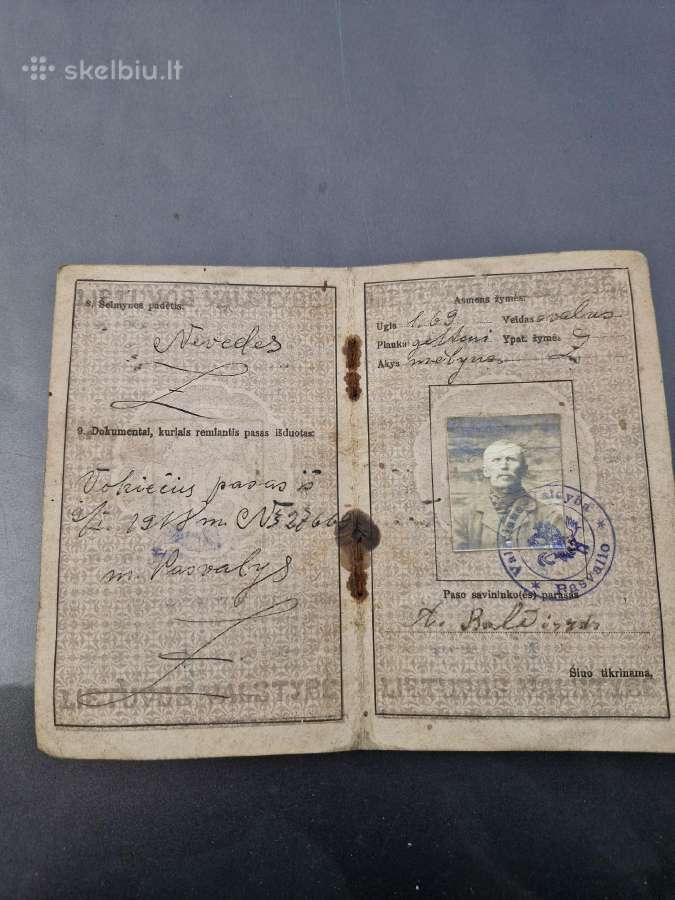 skelbiu.lt
8. Šeimynos padėtis:
Nevedes
9. Dokumentai, kuriais remiantis pasas išduotas:
Vokiečius pasas iš
1918 m. №
m. Pasvalys
Asmens žymės:
Ugis 1.69 Veidas ovalus
Plaukai geltoni Ypat. žymė:
Akys mėlynos
Valsčiaus Valdyba * Pasvalio *
Paso savininko(ės) parašas
A.
Šiuo tikrinama,